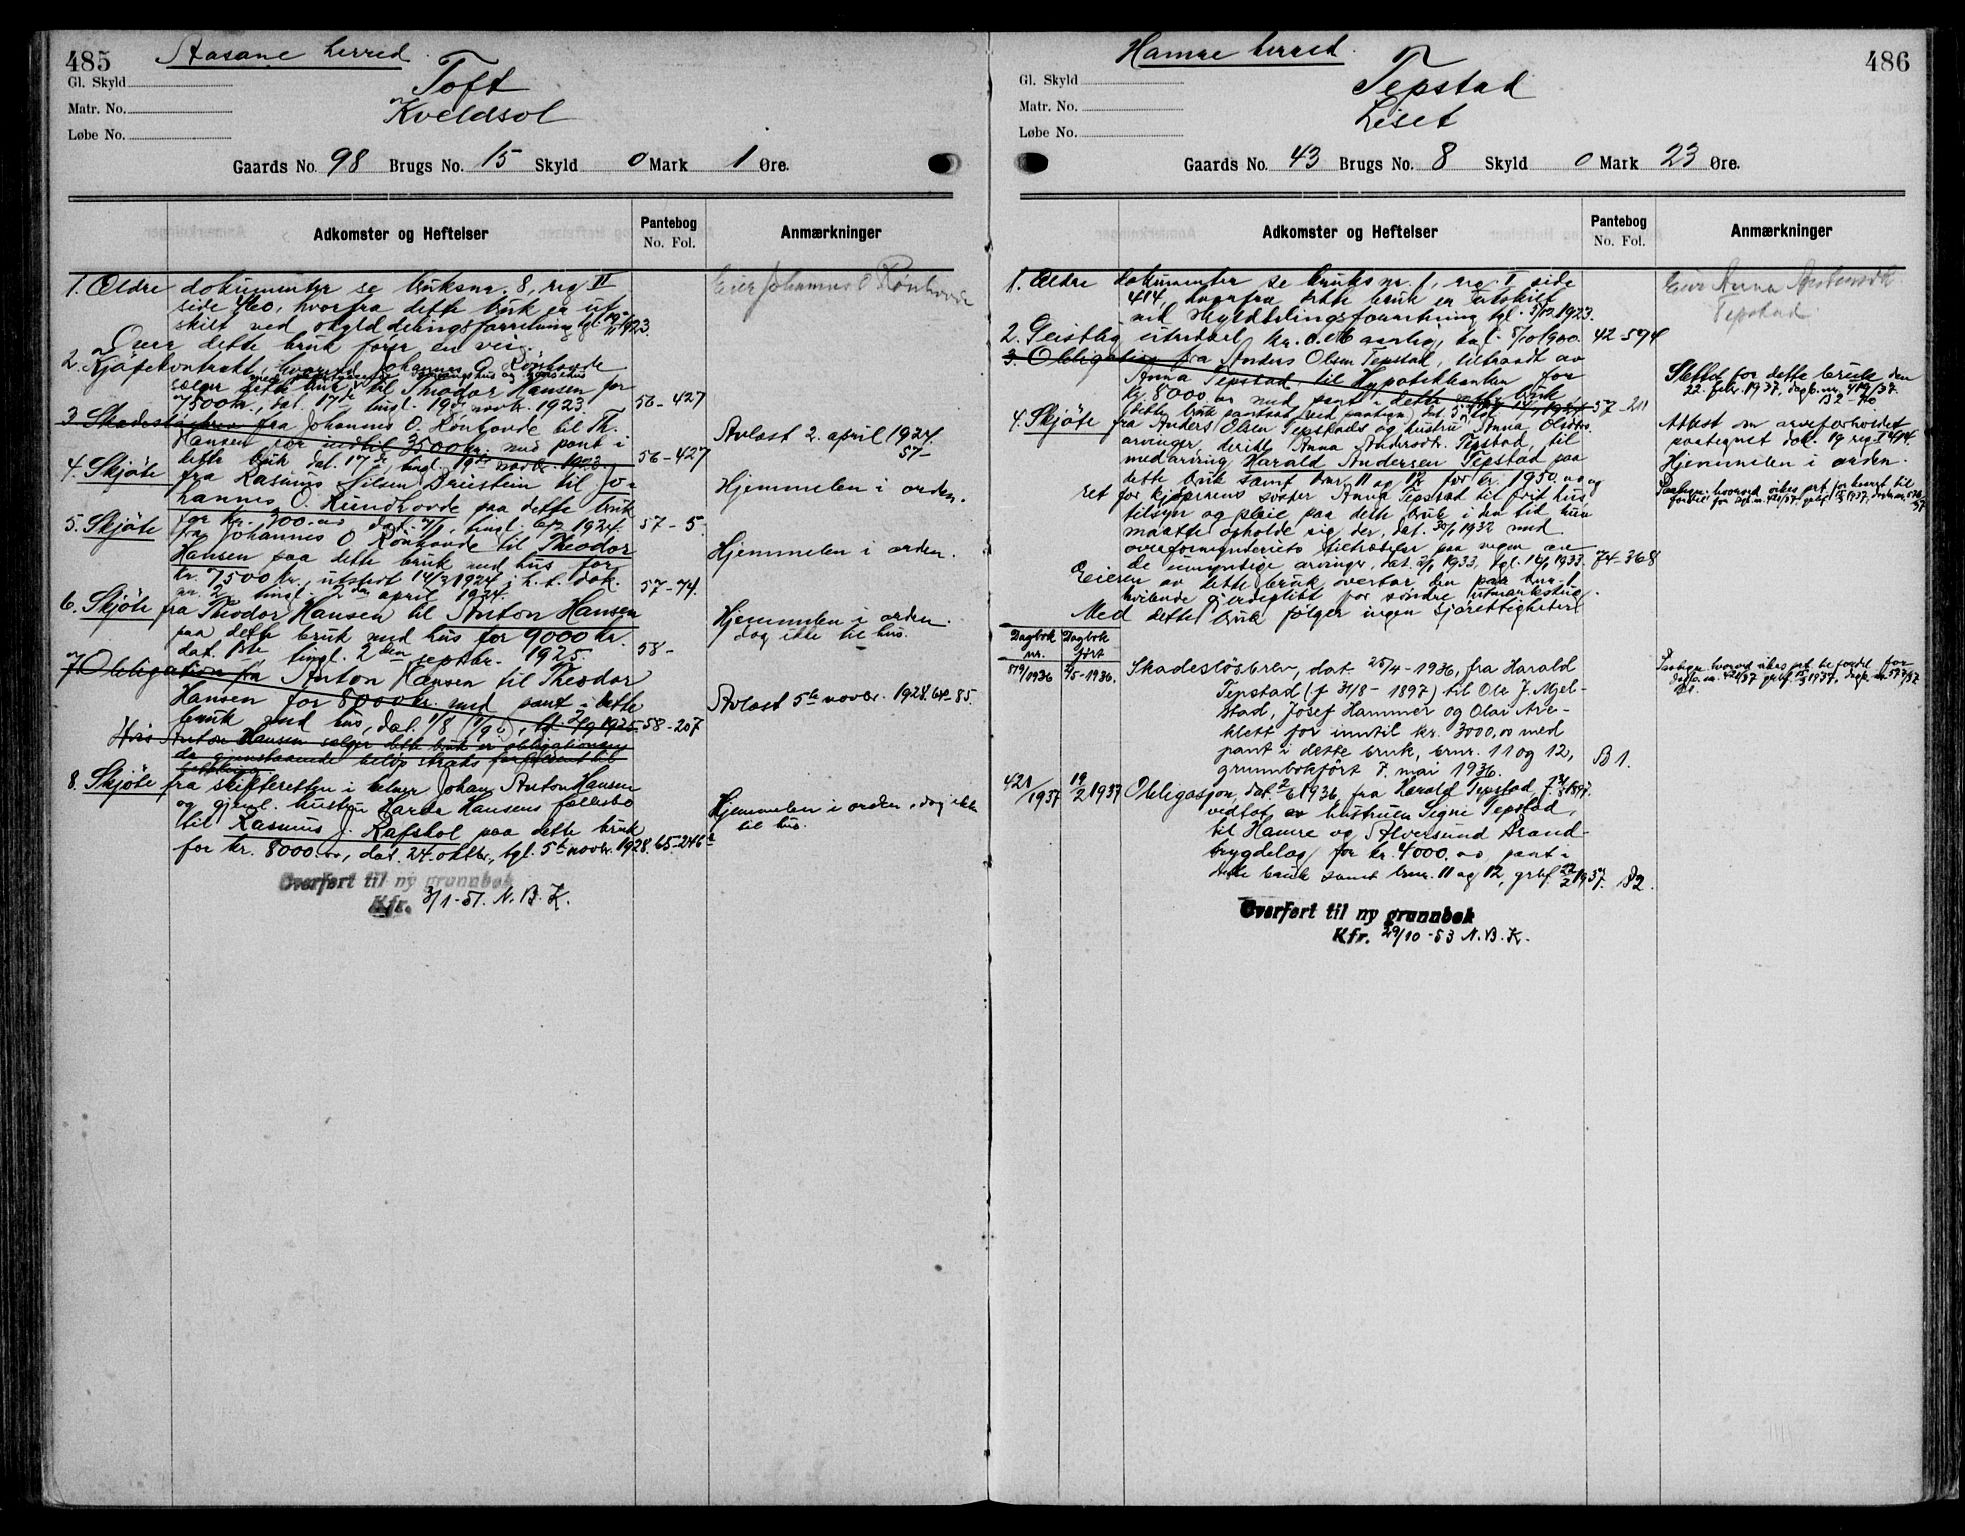 485
Aasane herred.
Gl. Skyld
Toft
Matr. No.
Kveldsol
Løbe No.
Gaards No. 98 Brugs No. 15 Skyld 0 Mark 1 Øre.
Adkomster og Heftelser
Pantebog
No. Fol.
Anmærkninger
1. Ældre dokumenter se bruksnr. 8, reg II
Eier Johannes O Rönhovde
side 460, hvorfra dette bruk er ut-
skilt ved skylddelingsforretning tgl 19/11 1923.
Over dette bruk fører en vei.
2. Kjøpekontrakt, hvorved Johannes O. Rönhovde
sælger dette bruk til Theodor Hansen for
7500 kr., dat. 17de tingl. 19de novbr. 1923.
56-427
3. Skadesløsbrev fra Johannes O. Rönhovde til Th.
Avlæst 2. april 1924.
57-
Hansen for indtil 3500 kr. med pant i
dette bruk dat. 17de, tingl. 19de novbr. 1923.
56-427
4. Skjöte fra Rasmus Nilsen Breistein til Jo-
Hjemmelen i orden.
hannes O. Rundhovde paa dette bruk
for kr. 300.00 dat. 7/1, tingl. 6/2 1924.
57-5.
5. Skjöte fra Johannes O Rönhovde til Theodor
Hjemmelen i orden.
Hansen paa dette bruk med hus for
kr. 7500 kr., utstedt 14/3 1924 i h. t. dok.
nr. 2 tingl. 2den april 1924.
57-74.
6. Skjöte fra Theodor Hansen til Anton Hansen
Hjemmelen i orden.
dog ikke til hus.
paa dette bruk med hus for 9000 kr.
dat. 1ste tingl. 2den septbr. 1925.
58-
7. Obligation fra Anton Hansen til Theodor
Hansen for 8000 kr. med pant i dette
Avlæst 5te novbr. 1928. 64-85.
bruk med hus, dat. 1/8 (1/9), tgl. 2/9 1925
58-207
Hvis Anton Hansen sælger dette bruk er obligationens
da gjenstaaende beløp straks forfaldent til
8. Skjöte fra skifteretten i Johan Anton Hansen
og gjenl. hustru Hansens fællesbo
Hjemmelen i orden, dog ikke
til hus.
til Rasmus J. Rafshol paa dette bruk
for kr. 8000.00, dat. 24. oktbr., tgl. 5te novbr. 1928.
65-246
Overført til ny grunnbok
Kfr. 3/1-51. N. B. K.
486
Hamre herred.
Gl. Skyld
Tepstad
Matr. No.
Liset
Løbe No.
Gaards No. 43 Brugs No. 8 Skyld 0 Mark 23 Øre.
Adkomster og Heftelser
Pantebog
No. Fol.
Anmærkninger
1. Ældre dokumenter se bruksnr. 1, reg. I side
Eier Anna
Tepstad
414, hvorfra dette bruk er fraskilt
ved skylddelingsforretning tgl. 5/12 1923.
2. Geistlig utredsel, kr. 0.16 aarlig, tgl. 5/10 1900.
42-594
3. Obligation fra Anders Olsen Tepstad, tiltraadt av
Anna Tepstad til Hypotekbanken for
Slettet for dette bruk den
22. febr. 1937, dagb. nr. 419/37.
kr. 8000.00 med pant i dette bruk
57-211
4. Skjöte fra Anders Olsen Tepstads og hustru Anna Olsdtrs.
Attest om arveforholdet
paategnet dok. 19 reg. I 414.
arvinger, deribl. Anna Andersdtr. Tepstad, til
medarving Harald Andersen Tepstad paa
Hjemmelen i orden.
dette bruk samt bnr. 11 og 12 for kr. 1950.00 og
ret for kjøperens søster Anna Tepstad til frit hus
tilsyn og pleie paa dette bruk i den tid hun
maatte opholde sig der, dat. 30/1 1932 med
overformynderiets tiltrædelse paa vegne av
de umyndige arvinger, dat. 2/1 1933, tgl. 14/1 1933.
74-368
Eieren av dette bruk overtar den paa bnr. 1
hvilende gjerdeplikt for søndre utmarksstue.
Med dette bruk følger ingen sjørettigheter.
Dagbok nr.
Dagbok ført
519/1936
4/5-1936.
Skadeslösbrev, dat. 25/4-1936, fra Harald
Tepstad (f 31/8-1897) til Ole J. Mjel-
stad, Josef Hammer og Olai Are-
klett for inntil kr. 3000,00 med
pant i dette bruk, brnr. 11 og 12,
grunnbokført 7. mai 1936.
B 1.
421/1937
19/2 1937
Obligasjon, dat. 2/6 1936 fra Harald Tepstad, f. 31/8 1897.
vedtatt av hustruen Signe Tepstad,
til Hamre og Alversund Brand-
trygdelag for kr. 4000.00 pant i
dette bruk samt brnr. 11 og 12, grbf. 22/2 1937.
B2.
Overført til ny grunnbok
Kfr. 29/10-53 N. B. K.